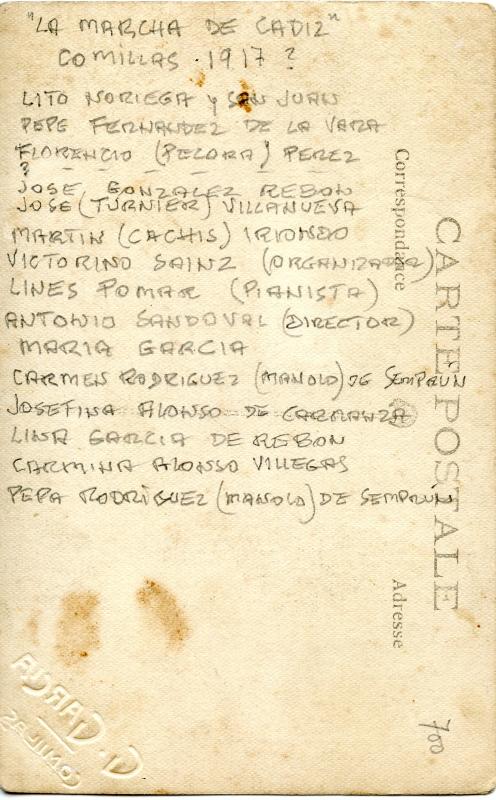 "LA MARCHA DE CADIZ"
COMILLAS . 1917 ?
LITO NORIEGA y SAN JUAN
PEPE FERNANDEZ DE LA VARA
FLORENCIO (PECORA) PEREZ
? — — — — — — —
JOSE GONZALEZ REBON
JOSE (TURNIER) VILLANUEVA
MARTIN (CACHIS) IRIONDO
VICTORINO SAINZ (ORGANIZADOR)
LINES POMAR (PIANISTA)
ANTONIO SANDOVAL (DIRECTOR)
MARIA GARCIA
CARMEN RODRIGUEZ (MANOLO) DE SEMPRUN
JOSEFINA ALONSO DE CARRANZA
LINA GARCIA DE REBON
CARMINA ALONSO VILLEGAS
PEPA RODRIGUEZ (MANOLO) DE SEMPRÚN
CARTE POSTALE
Correspondance
Adresse
700
G. GARCIA
COMILLAS